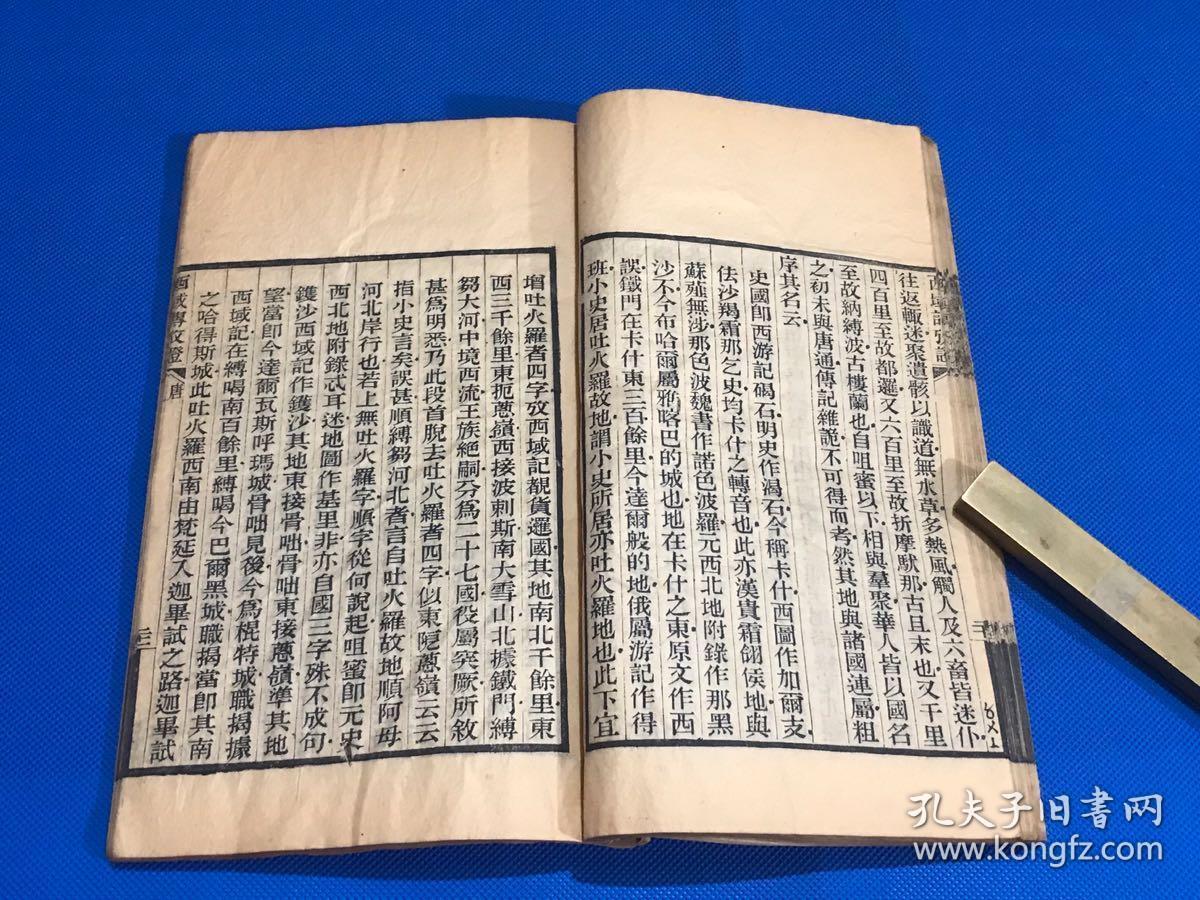 往返輒迷聚遺骸以識道無水草多熱風觸人及六畜皆迷仆
四百里至故都邏又六百里至故折摩馱那古且末也又千里
至故納縛波古樓蘭也自咀蜜以下相與羣聚華人皆以國名
之初未與唐通傳記雜詭不可得而考然其地與諸國連屬粗
序其名云
史國卽西游記碣石明史作渴石今稱卡什西圖作加爾支
佉沙羯霜那乞史均卡什之轉音也此亦漢貴霜翎侯地與
蘇薤無涉那色波魏書作諾色波羅元西北地附錄作那黑
沙不今布哈爾屬雅喀巴的城也地在卡什之東原文作西
誤鐵門在卡什東三百餘里今達爾般的地俄屬游記作得
班小史居吐火羅故地謂小史所居亦吐火羅地也此下宜
三
增吐火羅者四字攷西域記覩貨邏國其地南北千餘里東
西三千餘里東扼蔥嶺西接波剌斯南大雪山北據鐵門縛
芻大河中境西流王族絕嗣分爲二十七國役屬突厥所敘
甚爲明悉乃此段首脫去吐火羅者四字似東扼蔥嶺云云
指小史言矣誤甚順縛芻河北者言自吐火羅故地順阿母
河北岸行也若上無吐火羅字順字從何說起咀蜜卽元史
西北地附錄忒耳迷地圖作基里非亦自國三字殊不成句
鑊沙西域記作鑊沙其地東接骨咄骨咄東接蔥嶺準其地
望當卽今達爾瓦斯呼瑪城骨咄見後今爲棍特城職揭據
西域記在縛喝南百餘里縛喝今巴爾黑城職揭當卽其南
之哈得斯城此吐火羅西南由梵延入迦畢試之路迦畢試
西域傳攷證
唐
三
孔夫子旧书网
www.kongfz.com